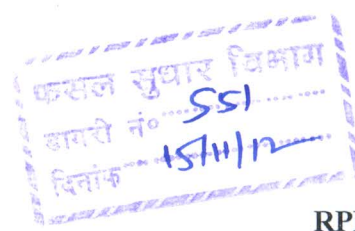 फसल सुधार विभाग
डायरी नं० 551
दिनांक 15/11/12
RP